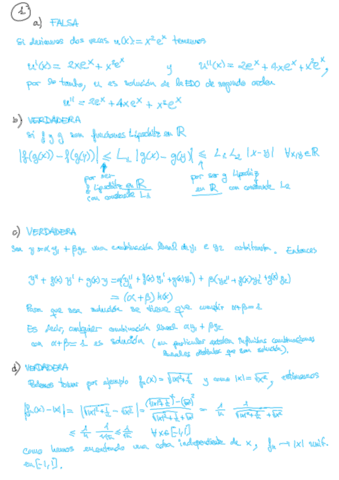 1
a) FALSA
Si derivamos dos veces u(x) = x²eˣ tenemos
u'(x) = 2xeˣ + x²eˣ y u''(x) = 2eˣ + 4xeˣ + x²eˣ,
por lo tanto, u es solución de la EDO de segundo orden
u'' = 2eˣ + 4xeˣ + x²eˣ
b) VERDADERA
Si f y g son funciones Lipschitz en ℝ
|f(g(x)) - f(g(y))| ≤ L₁ |g(x) - g(y)| ≤ L₁L₂ |x - y| ∀x,y∈ℝ
por ser por ser g Lipschitz
f Lipschitz en ℝ en ℝ con constante L₂
con constante L₁
c) VERDADERA
Sea y = αy₁ + βy₂ una combinación lineal de y₁ e y₂ Entonces
y'' + f(x)y' + g(x)y = α(y₁'' + f(x)y₁' + g(x)y₁) + β(y₂'' + f(x)y₂' + g(x)y₂)
= (α + β) h(x)
Para que sea solución se tiene que cumplir α+β=1
Es decir, cualquier combinación lineal αy₁ + βy₂
con α+β=1 es solución (en particular existen infinitas combinaciones
lineales distintas que son solución).
d) VERDADERA
Podemos tomar por ejemplo fₙ(x) = √(x²+1/n) y como |x| = √x², obtenemos
|fₙ(x) - |x|| = |√(x²+1/n) - √x²| = = 1/n 1/(√(x²+1/n) + √x²)
≤ 1/n 1/√(1/n) ≤ 1/√n ∀x∈[-1,1]
Como hemos encontrado una cota independiente de x, fₙ → |x| unif.
en [-1,1].